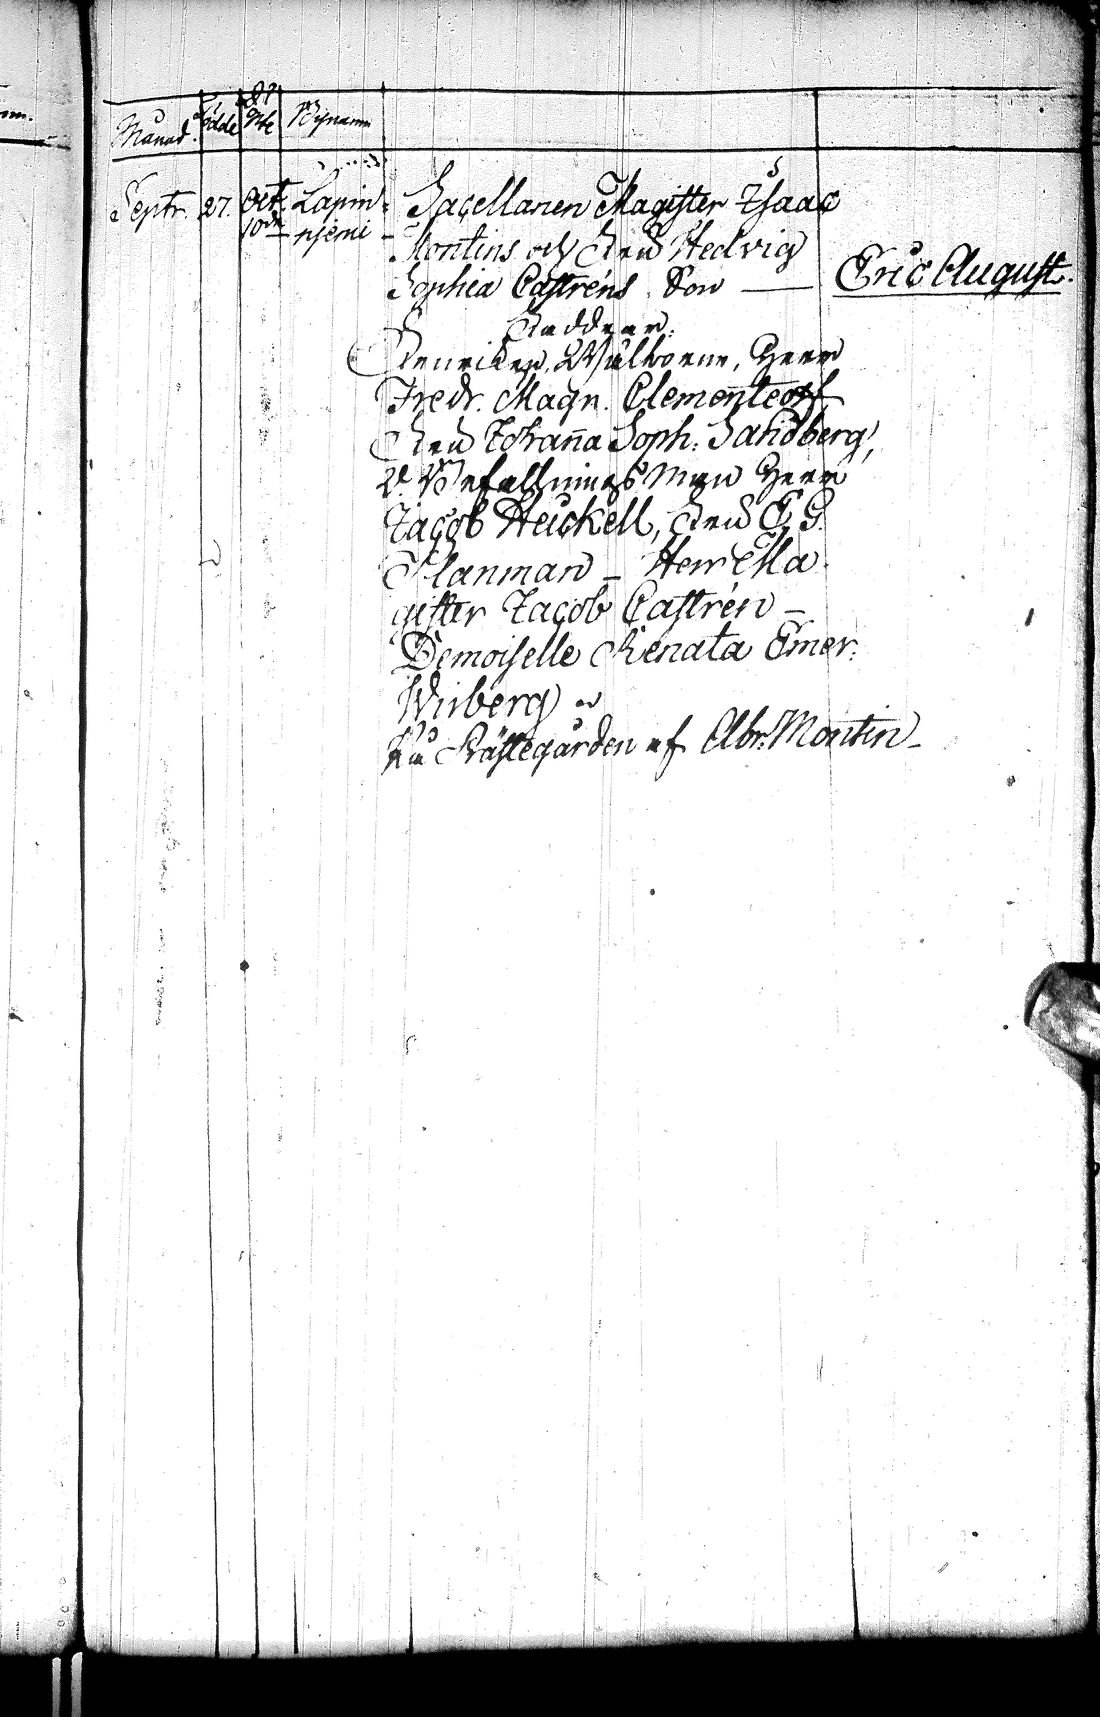 Månad. Födde Chr: Döpte Bynamn
Septr. 27. Oct. Lapin-
10de njemi
Sacellanen Magister Isaac
Montins och Fru Hedvig
Sophia Castréns Son — Eric August.
Faddrar:
Herr
Fredr. Magn. Clementeoff
Fru Johanna Soph: Sandberg,
V. Befallningsman Herr
Jacob Heickell, Fru E. G.
Planman – Herr Ma-
gister Jacob Castrén –
Demoiselle Renata Emer:
Wirberg
Prästegården af Abr: Montin